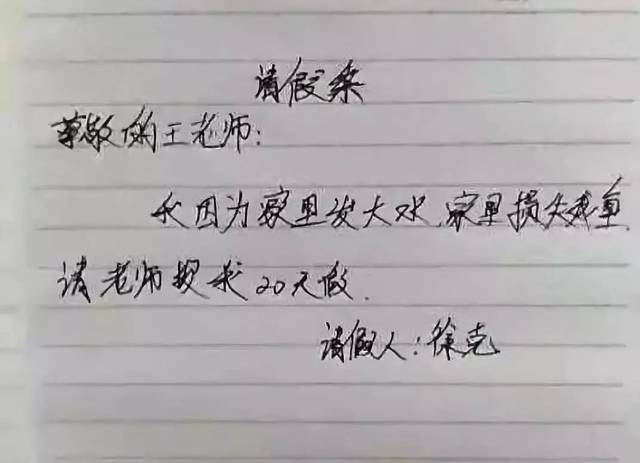 请假条
尊敬的王老师:
我因为家里发大水,家里损失残重.
请老师授我20天假.
请假人:徐克